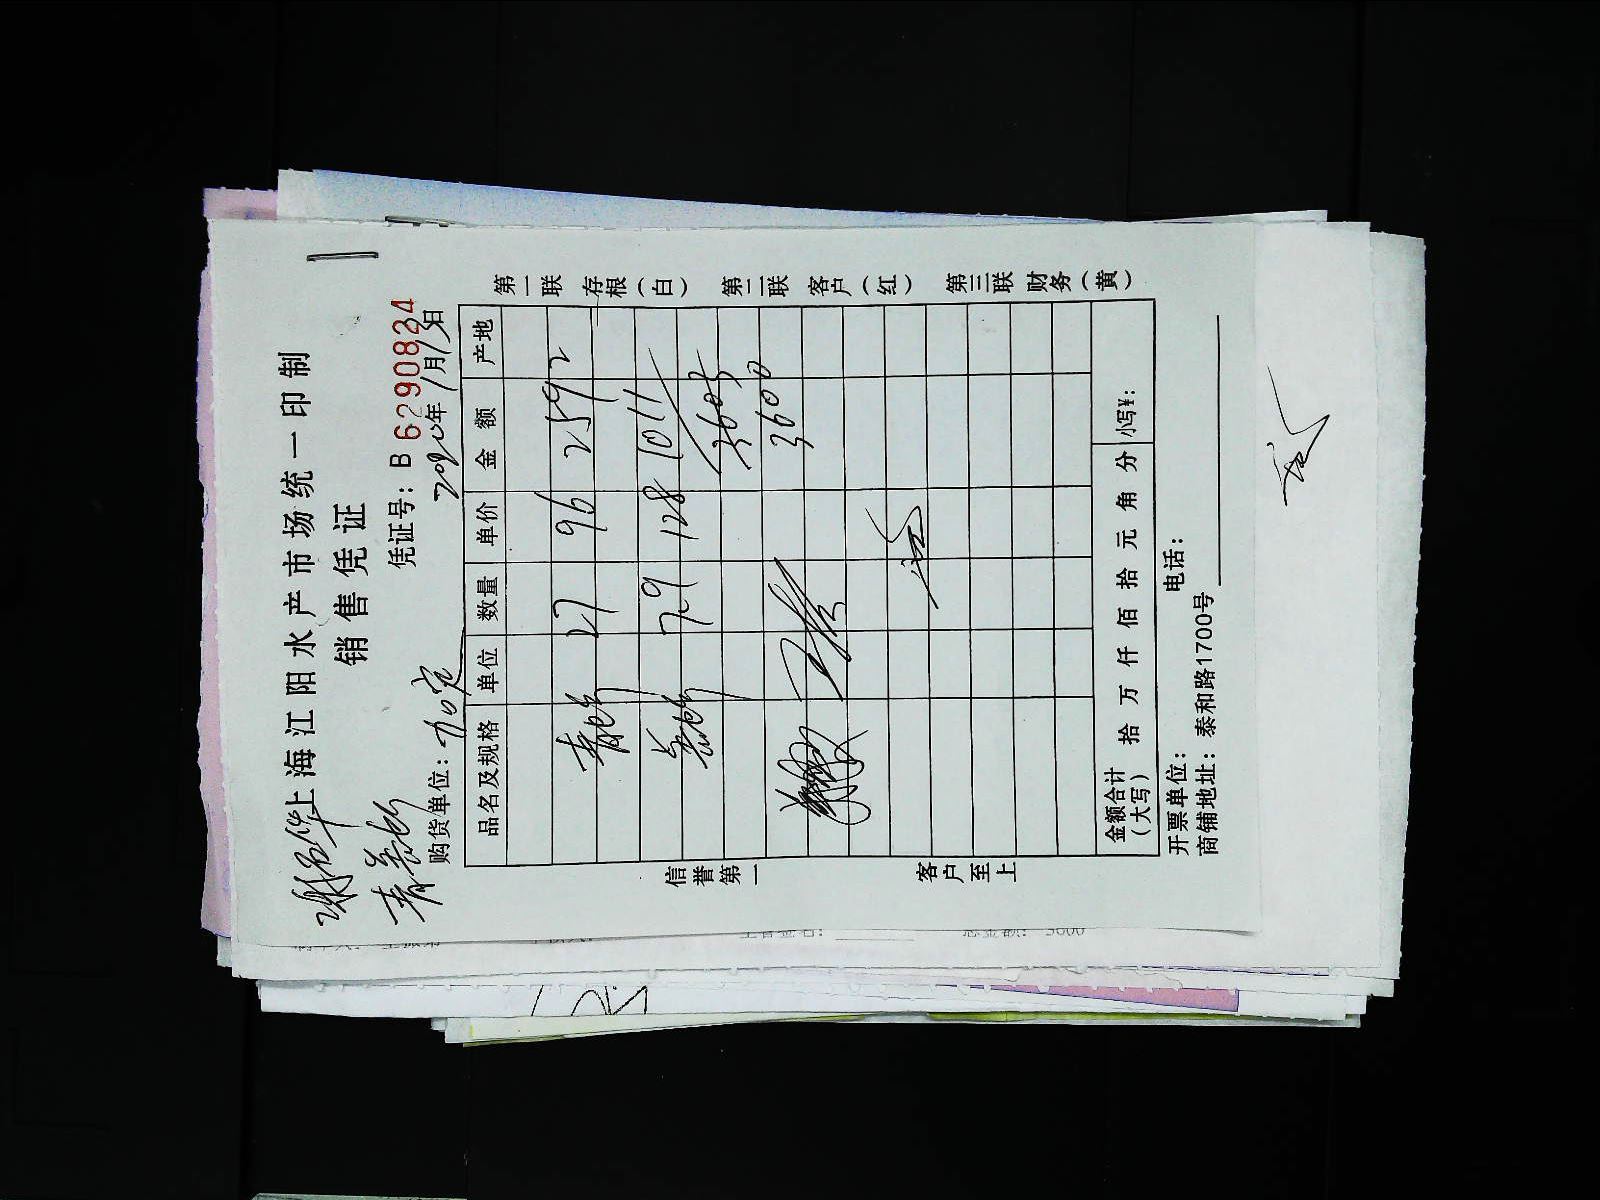 上海江阳水产市场统一印制
销售凭证
凭证号：B 6290824
购货单位：
2020年1月13日
品名及规格 单位 数量 单价 金额 产地
27 96 2592
7.9 128 1011
3603
3600
金额合计（大写） 拾 万 仟 佰 拾 元 角 分 小写¥：
开票单位： 电话：
商铺地址：泰和路1700号
信誉第一 客户至上
第一联 存根（白） 第二联 客户（红） 第三联 财务（黄）